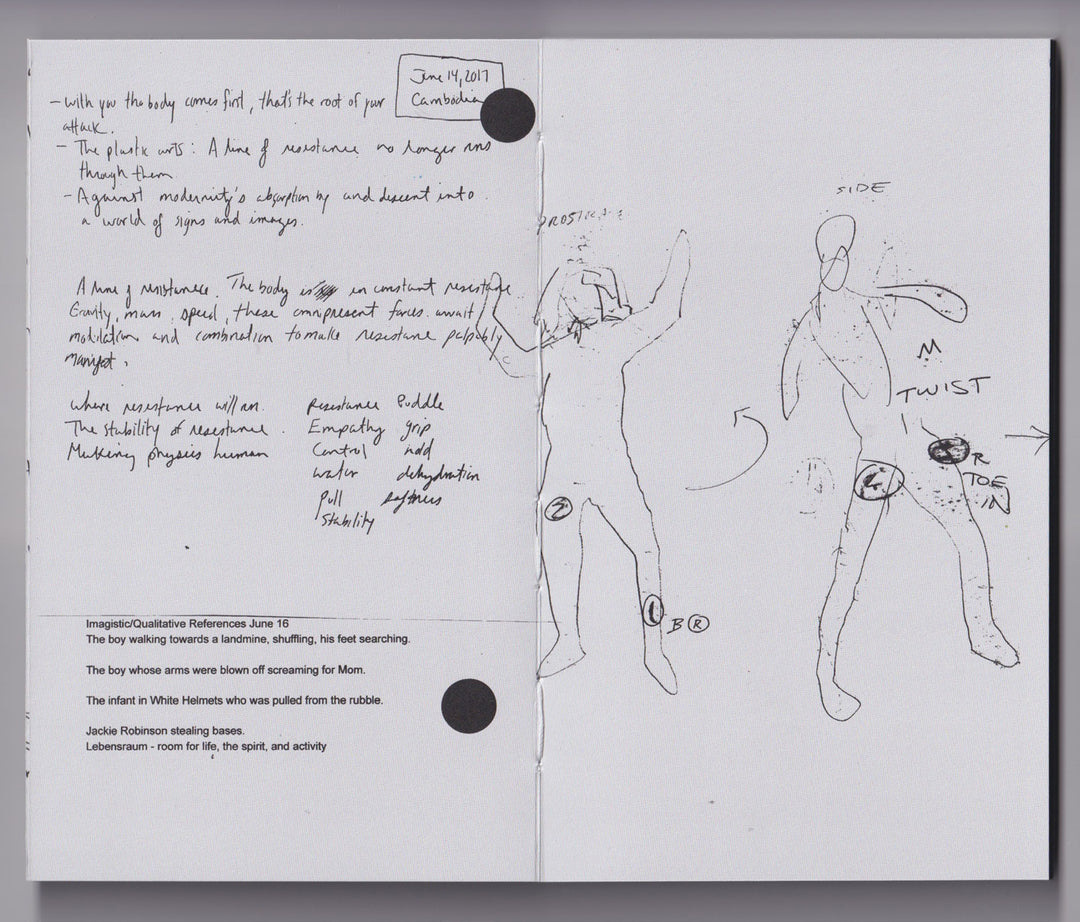 June 14, 2017
Cambodia
- with you the body comes first, that's the root of your
attack.
- The plastic arts: A line of resistance no longer runs
through them
- Against modernity's absorption by and descent into
a world of signs and images.
A line of resistance. The body is in constant resistance
Gravity, mass, speed, these omnipresent forces await
modulation and combination to make resistance palpably
manifest.
where resistance will run.
The stability of resistance.
Making physics human
Resistance Puddle
Empathy grip
Control
water dehydration
Pull softness
Stability
Imagistic/Qualitative References June 16
The boy walking towards a landmine, shuffling, his feet searching.
The boy whose arms were blown off screaming for Mom.
The infant in White Helmets who was pulled from the rubble.
Jackie Robinson stealing bases.
Lebensraum - room for life, the spirit, and activity
SIDE
TWIST
L
R
TOE
IN
B R